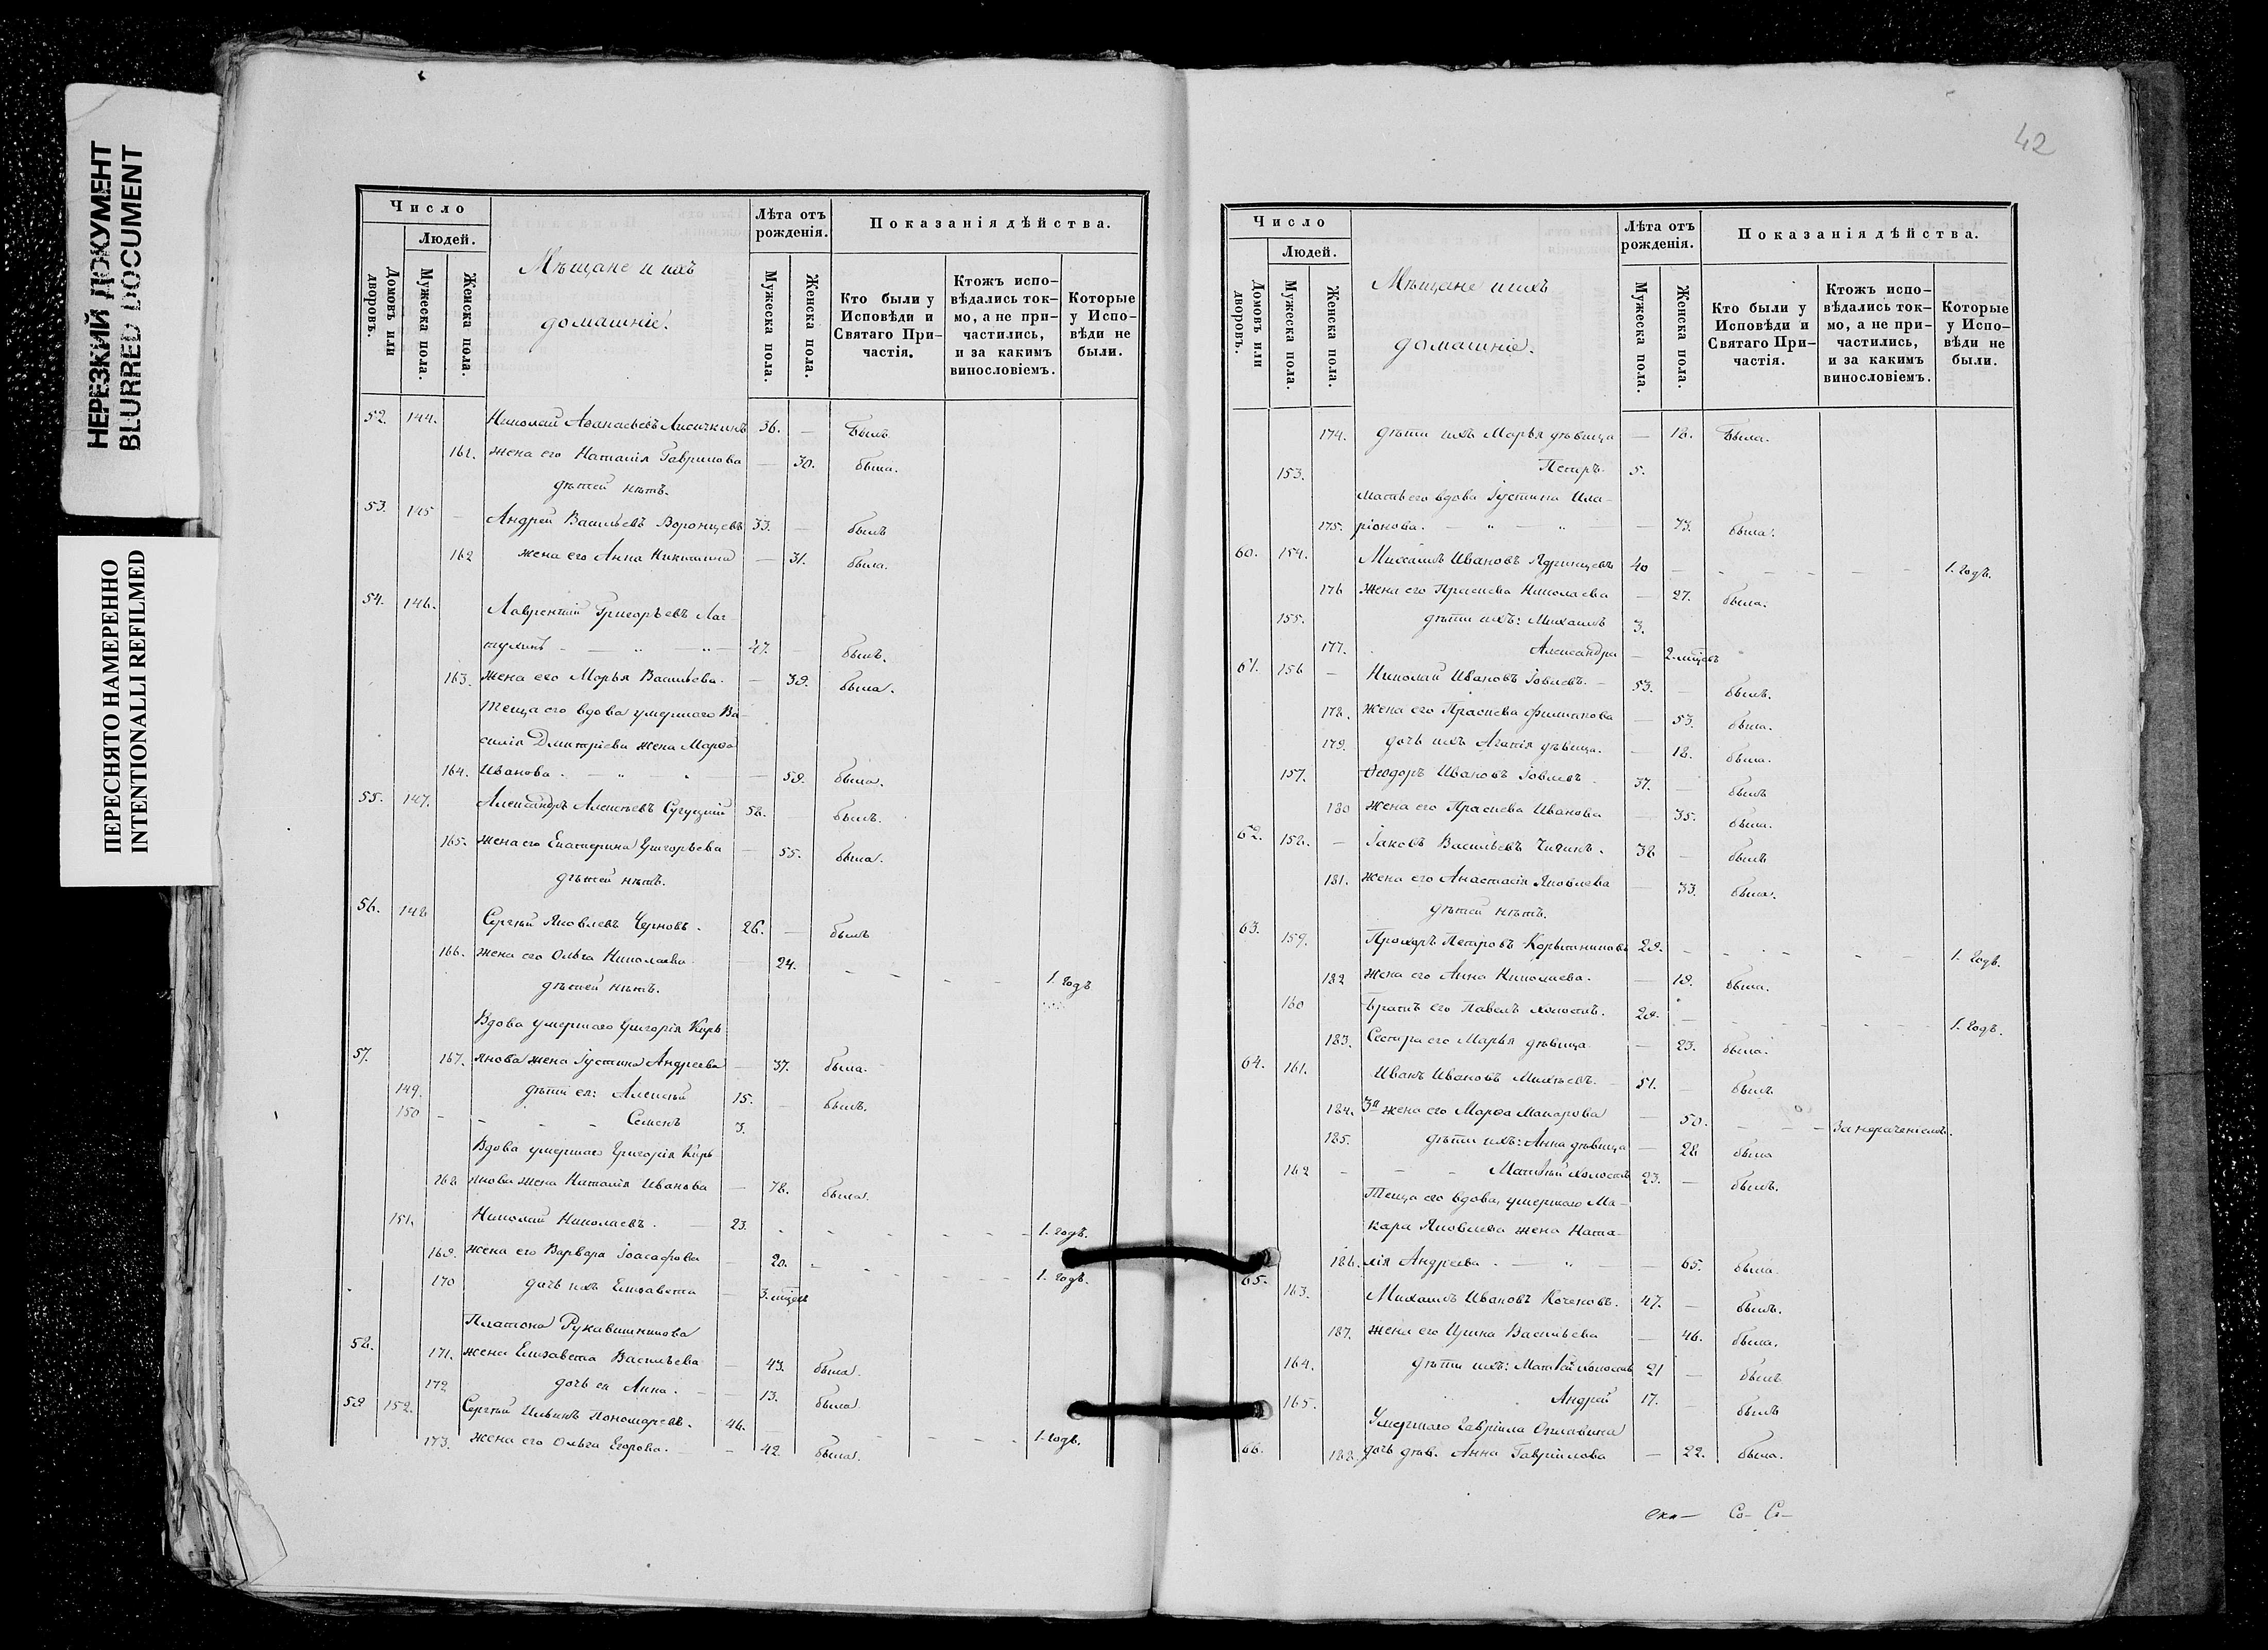 НЕРЕЗКИЙ ДОКУМЕНТ
BLURRED DOCUMENT
ПЕРЕСНЯТО НАМЕРЕННО
INTENTIONALLI REFILMED
Число
Людей.
Домовъ или дворовъ.
Мужеска пола.
Женска пола.
Мѣщане и ихъ
домашніе.
Лѣта отъ рожденія.
Мужеска пола.
Женска пола.
Показанія дѣйства.
Кто были у Исповѣди и Святаго При-частія.
Ктожъ испо-вѣдались ток-мо, а не при-частились, и за какимъ винословіемъ.
Которые у Испо-вѣди не были.
52. 144. Николай Аѳанасьевъ Лисичкинъ 36. — Былъ
161. жена его Наталія Гаврилова — 30. была.
дѣтей нѣтъ.
53. 145 — Андрей Васильевъ Воронцевъ 33. — былъ
162 жена его Анна Никитина — 31. была.
54. 146. Лаврентій Григорьевъ Лас-
тухинъ — „ — „ — 47. былъ.
163. жена его Марья Васильева. — 39. была.
Теща его вдова умершаго Ва-
силія Дмитріева жена Марѳа
164. Иванова. — „ — „ — 59. была.
55. 147. Александръ Алексѣевъ 58. — былъ.
165. жена его Екатерина Григорьева — 55. была.
дѣтей нѣтъ.
56. 148 Сергѣй Яковлевъ Черновъ. 26. — былъ
166. жена его Ольга Николаева — 24. - - - - 1. годъ
дѣтей нѣтъ.
Вдова умершаго Григорія Кирь
57. 167. янова жена Іустина Андреева — 37. была.
149. дѣти ея: Алексѣй 15. — былъ.
150 - - - - Семенъ 3.
Вдова умершаго Григорія Кирь
168 янова жена Наталія Иванова — 78. была.
151. Николай Николаевъ. — 23. - - - - - 1. годъ.
169. жена его Варвара Іоасафова — 20. - - - - 1. годъ.
170 дочь ихъ Елизавета — 3. мѣсец
Платона Рукавишникова
58. 171. жена Елизавета Васильева — 43. была.
172 дочь ея Анна. — — 13. была
59 152. Сергѣй Ильинъ Пономаревъ. 46. — - - - - 1. годъ.
173. жена его Ольга Егорова. — 42. была.
42
Число
Людей.
Домовъ или дворовъ.
Мужеска пола.
Женска пола.
Мѣщане и ихъ
домашніе.
Лѣта отъ рожденія.
Мужеска пола.
Женска пола.
Показанія дѣйства.
Кто были у Исповѣди и Святаго При-частія.
Ктожъ испо-вѣдались ток-мо, а не при-частились, и за какимъ винословіемъ.
Которые у Испо-вѣди не были.
174. дѣти ихъ Марья дѣвица — 18. Была.
153. Петръ 5.
Мать его вдова Іустина Ила-
175. ріонова. — „ — „ — — 73. была.
60. 154. Михаилъ Ивановъ Ядринцевъ 40 — - - - - 1. годъ.
176 Жена его Прасковья Николаева — 27. была.
155. дѣти ихъ: Михаилъ 3.
177. Александра — 2. мѣсецъ
61. 156 — Николай Ивановъ Іовлевъ. — 53. — былъ.
178. Жена его Прасковья Филипова — 53. была.
179. дочь ихъ Агапія дѣвица. — 18. была.
157. Ѳеодоръ Ивановъ Іовлевъ 37. — былъ
180 жена его Прасковья Иванова — 35. была.
62. 158. — Іаковъ Васильевъ Чигинъ. 38 — былъ
181. жена его Анастасія Яковлева — 33. была.
дѣтей нѣтъ.
63. 159. Прохоръ Петровъ Корытниковъ 29. — - - - - 1. годъ.
182 Жена его Анна Николаева. — 19. была.
160 Братъ его Павелъ холостъ. 20. — - - - - 1. годъ.
183. Сестра его Марья дѣвица — 23. была.
64. 161. Иванъ Ивановъ Михѣевъ. — 51. — былъ
184. 3я жена его Марѳа Макарова — 50. - - - За нераченіемъ.
185. дѣти ихъ: Анна дѣвица — 28 была
162 - - - Матвѣй холостъ 23. — былъ.
Теща его вдова, умершаго Ма-
кара Яковлева жена Ната-
186. лія Андреева. — „ — — 65. была.
65. 163. Михаилъ Ивановъ Коченовъ. 47. — былъ.
187. жена его Ирина Васильева — 46. была.
164. дѣти ихъ: Матвѣй холостъ 21 — былъ
165. Андрей 17. — былъ
Умершаго Гавріила
66. 188. дочь дѣв. Анна Гавриилова — 22. была.